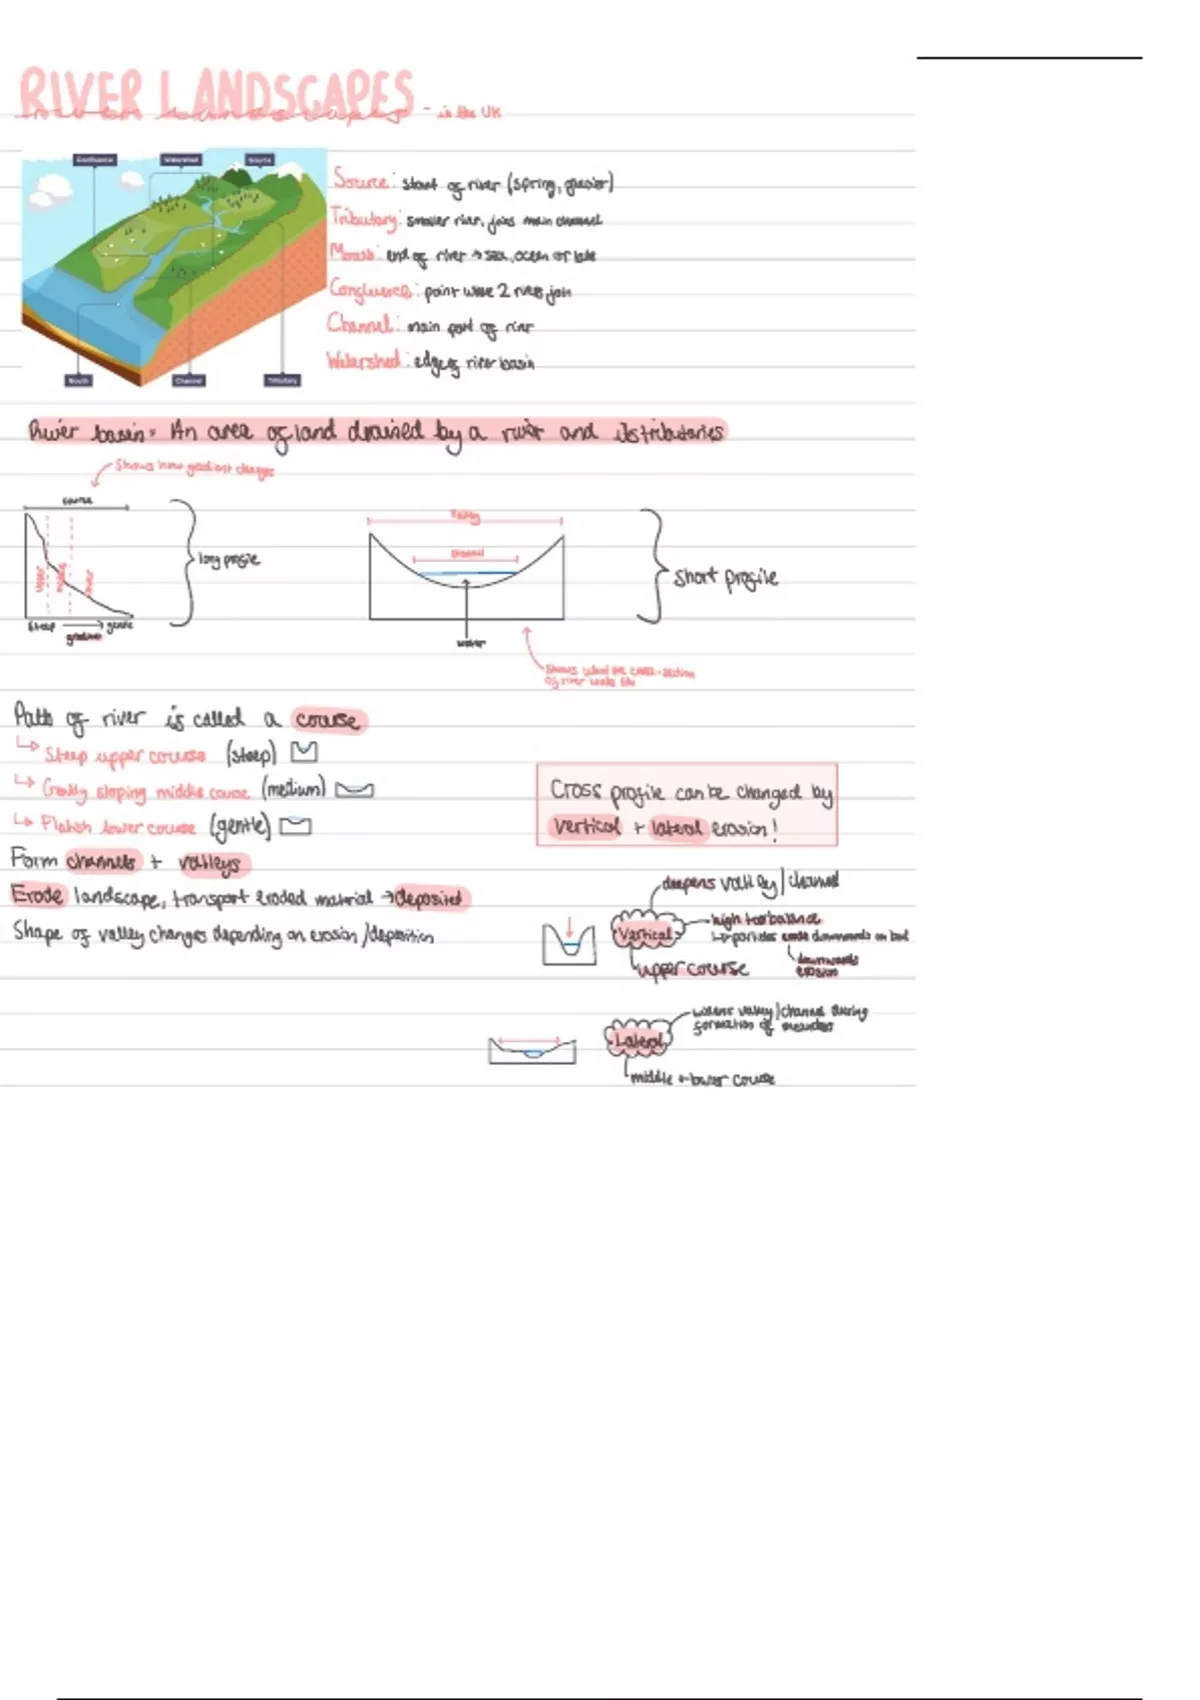 RIVER LANDSCAPES
river landscapes - in the UK
Confluence Watershed Source
Source: start of river (spring, glacier)
Tributary: smaller river, joins main channel
Mouth: end of river → sea, ocean or lake
Confluence: point where 2 rivers join
Channel: main part of river
Watershed: edge of river basin
Mouth Channel Tributary
River basin = An area of land drained by a river and its tributaries
Shows how gradient changes
course
upper middle lower
steep → gentle
gradient
long profile
valley
channel
water
short profile
Shows what the cross-section
of river looks like
Path of river is called a course
↳ Steep upper course (steep)
↳ Gently sloping middle course (medium)
↳ Flatish lower course (gentle)
Form channels + valleys
Erode landscape, transport eroded material → deposited
Shape of valley changes depending on erosion/deposition
Cross profile can be changed by
vertical + lateral erosion!
Vertical
deepens valley/channel
high turbulance
↳ particles erode downwards on bed
downwards
erosion
upper course
Lateral
widens valley/channel during
formation of meanders
middle + lower course